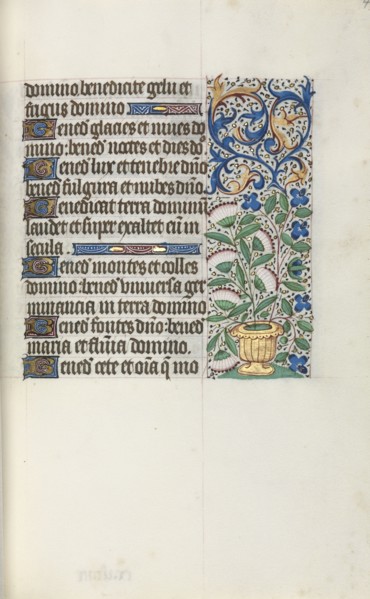 domino, benedicite gelu et
frigus domino
Bened glacies et nives do
mino: bened noctes et dies dño
Bened lux et tenebre dño
bened fulgura et nubes dño.
Benedicat terra dominũ
laudet et super exaltet eũ in
secula.
Bened montes et colles
domino: bened vniuersa ger
minancia in terra domino
Bened fontes dño: bened
maria et flũia domino.
Bened cete et oĩa q mo